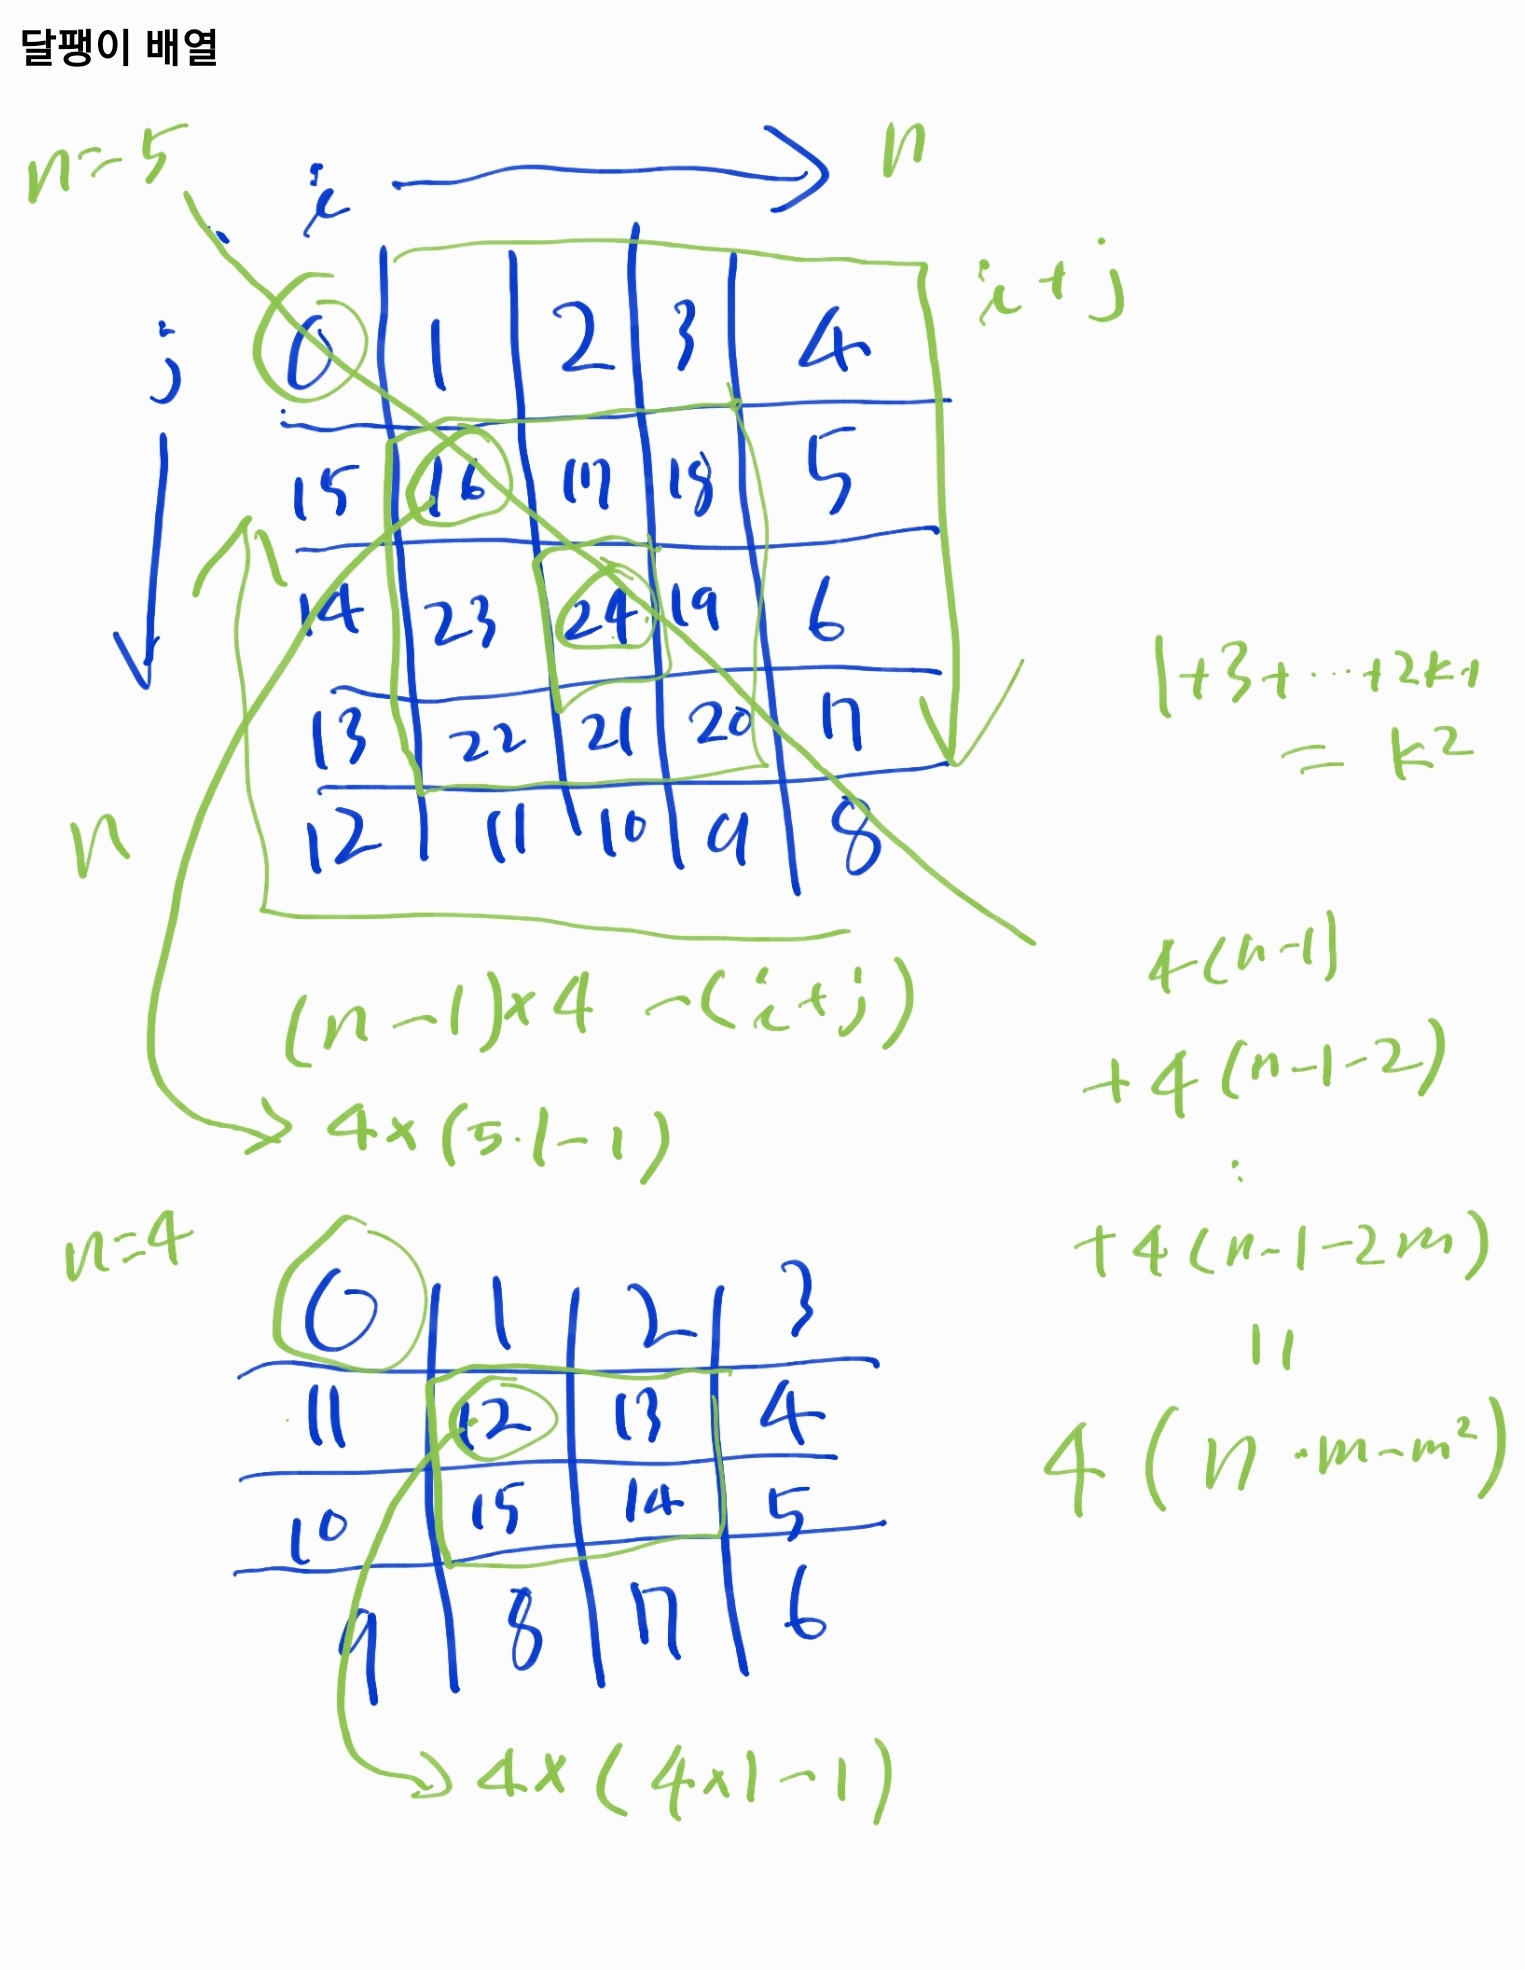 달팽이 배열
n=5
i
n
j
i+j
0 1 2 3 4
15 16 17 18 5
14 23 24 19 6
13 22 21 20 7
12 11 10 9 8
n
1+3+...+2k-1
= k²
(n-1)×4 -(i+j)
4×(5·1-1)
4(n-1)
+4(n-1-2)
⋮
+4(n-1-2m)
=
4(n·m-m²)
n=4
0 1 2 3
11 12 13 4
10 15 14 5
9 8 7 6
4×(4×1-1)